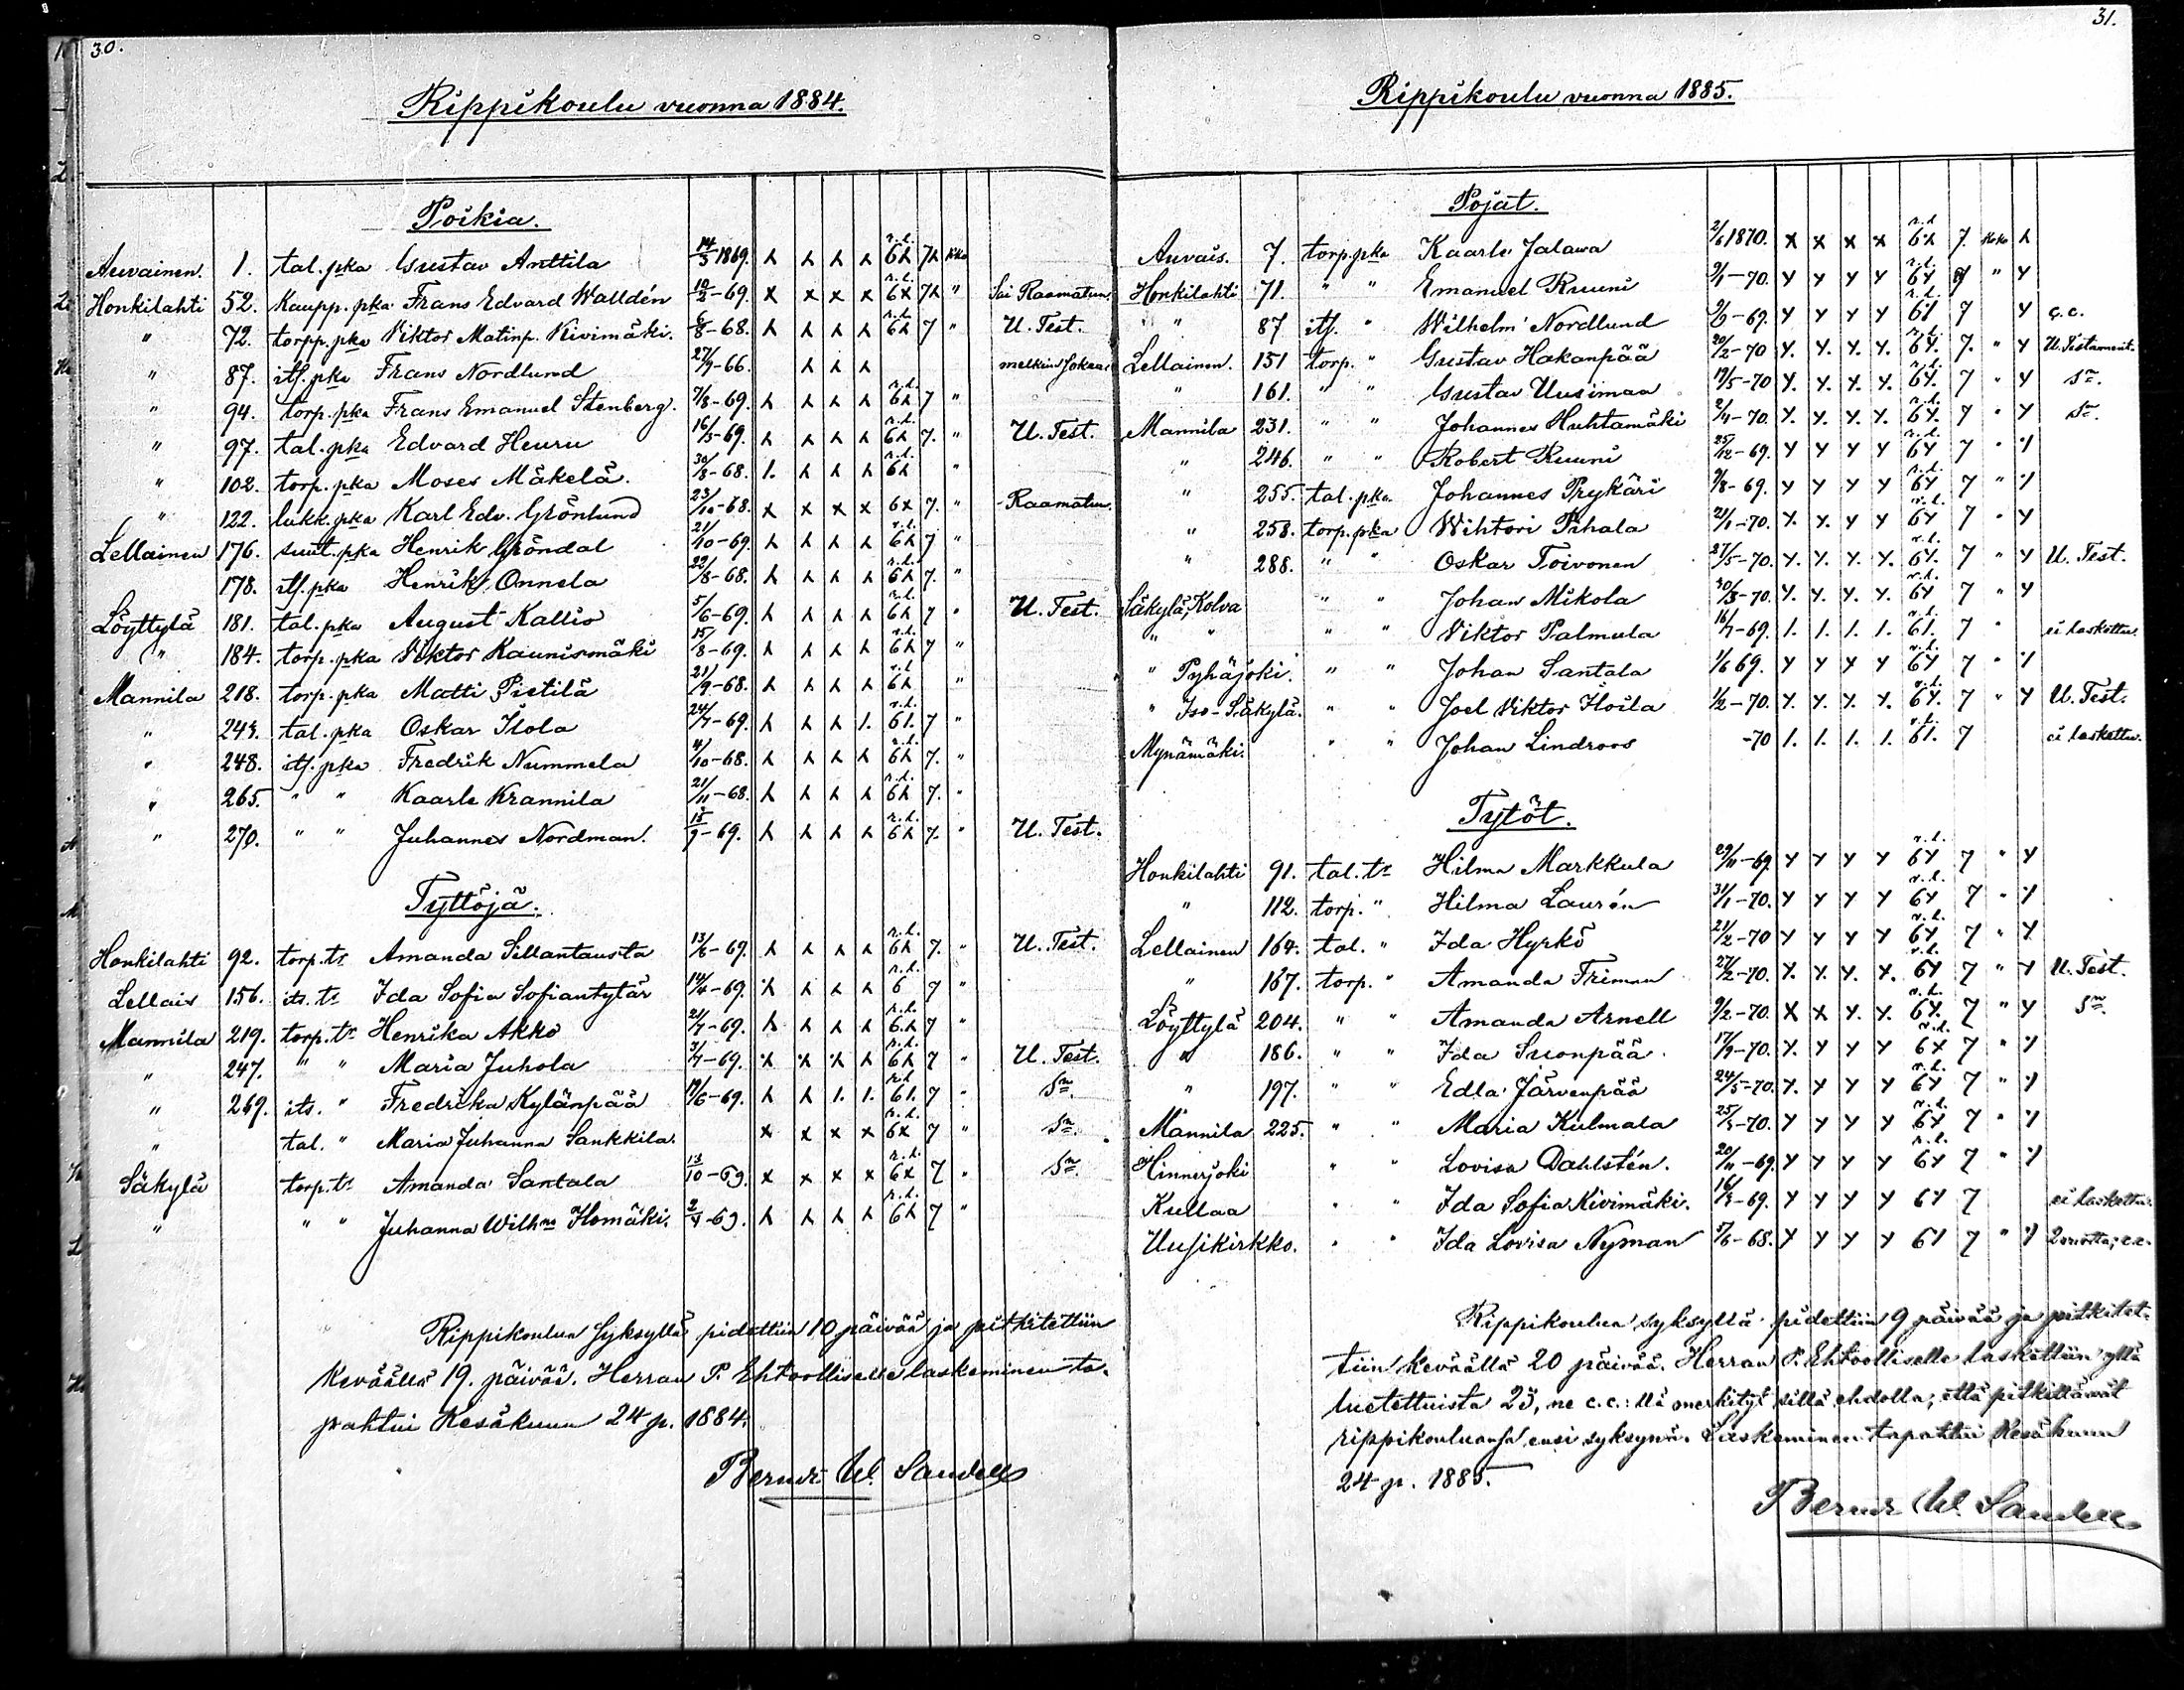 30.
Rippikoulu vuonna 1884.
Poikia.
Auvainen. 1. tal. pka Gustav Anttila 14/3 1869. r.l. 6 7 Koko
Honkilahti 52. Kaupp. pka Frans Edvard Walldén 12/2-69. x x x x r.l. 6x 7 " Sai Raamatun.
" 72. torpp. pka Viktor Matinp. Kivimäki. 6/8-68. r.l. 6 7 " U. Test.
" 87. itf. pka Frans Nordlund 27/9-66. melkein sokea
" 94. torp. pka Frans Emanuel Stenberg. 7/8-69. r.l. 6 7 "
" 97. tal. pka Edvard Heuru 16/5-69. r.l. 6 7. " U. Test.
" 102. torp. pka Moses Mäkelä. 30/8-68. r.l. 6 "
" 122. lukk. pka Karl Edv. Grönlund 23/10-68. x x x x 6x 7. " Raamatun.
Lellainen 176. suut. pka Henrik Gröndal 21/10-69. r.l. 6 7 "
178. itf. pka Henrik Onnela 22/8-68. r.l. 6 7. "
Löyttylä 181. tal. pka August Kallis 5/6-69. r.l. 6 7 " U. Test.
" 184. torp. pka Viktor Kaunismäki 15/8-69. r.l. 6 7 "
Mannila 218. torp. pka Matti Pietilä 21/9-68. r.l. 6 "
" 243. tal. pka Oskar Ilola 24/7-69. r.l. 6 7 "
" 248. itf. pka Fredrik Nummela 4/10-68. r.l. 6 7. "
" 265. " " Kaarle Krannila 21/11-68. r.l. 6 7. "
" 270. " " Juhannes Nordman. 15/9-69. r.l. 6 7. " U. Test.
Tyttöjä.
Honkilahti 92. torp. tr Amanda Sillantausta 13/6-69. r.l. 6 7. " U. Test.
Lellais 156. its. tr Ida Sofia Sofiantytär 14/4-69. r.l. 6 7 "
Mannila 219. torp. tr Henrika Akko 21/7-69. r.l. 6 7 "
" 247. " " Maria Juhola 3/7-69. r.l. 6 7 " U. Test.
" 269. its. " Fredrika Kylänpää 19/6-69. r.l. 6 7 " Sn.
" tal. " Maria Juhanna Sankkila. x x x x r.l. 6x 7 " Sn.
Säkylä torp. tr Amanda Santala 13/10-69. x x x x r.l. 6x 7 " Sn.
" " " Juhanna Wilhna Ilomäki. 2/4-69. r.l. 6 7 "
Rippikoulua syksyllä pidettiin 10 päivää ja pitkitettiin
keväällä 19. päivää. Herran P. Ehtoolliselle laskeminen ta-
pahtui Kesäkuun 24 p. 1884.
Bernds W. Sandell
31.
Rippikoulu vuonna 1885.
Pojat.
Auvais. 7. torp. pka Kaarle Jalawa 2/6 1870. x x x x r.l. 6 7. Koko
Honkilahti 71. " " Emanuel Ruuni 9/1-70. r.l. 6 7 "
" 87 itf. " Wilhelm Nordlund -69. r.l. 6 7 c.c.
Lellainen. 151 torp. " Gustav Hakanpää 20/2-70 r.l. 6 7. " U. Testament.
" 161. " " Gustav Uusimaa 19/5-70 r.l. 6 7 " Sn.
Mannila 231. " " Johannes Huhtamäki 2/4-70. r.l. 6 7 " Sn.
" 246. " " Robert Ruuni 25/12-69. r.l. 6 7 "
" 255. tal. pka. Johannes Prykäri 9/8-69. r.l. 6 7 "
" 258. torp. pka Wihtori Pihala 21/1-70. r.l. 6 7 "
" 288. " " Oskar Toivonen 27/5-70. r.l. 6 7 " U. Test.
Säkylä, Kolva " " Johan Mikola 30/3-70. r.l. 6 7 "
" " " " Viktor Palmula 16/7-69. r.l. 6 7 " ei laskettu.
" Pyhäjoki. " " Johan Santala 1/6 69. r.l. 6 7 "
" Iso-Säkylä. " " Joel Viktor Iloila 1/2-70. r.l. 6 7 " U. Test.
Mynämäki. " " Johan Lindroos -70 r.l. 6 7 ei laskettu.
Tytöt.
Honkilahti 91. tal. tr Hilma Markkula 29/11-69. r.l. 6 7 "
" 112. torp. " Hilma Laurén 31/1-70. r.l. 6 7 "
Lellainen 164. tal. " Ida Hyrkö 21/2-70 r.l. 6 7 "
" 167. torp. " Amanda Friman 27/2-70. r.l. 6 7 " U. Test.
Löyttylä 204. " " Amanda Arnell 9/2-70. r.l. 6 7 " Sn.
" 186. " " Ida Suonpää. 17/9-70. r.l. 6 7 "
" 197. " " Edla Järvenpää 24/5-70. r.l. 6 7 "
Mannila 225. " " Maria Kulmala 25/3-70. r.l. 6 7 "
Hinnerjoki " " Lovisa Dahlstén. 20/11-69. r.l. 6 7 "
Kullaa " " Ida Sofia Kivimäki. 16/3-69. 6 7 ei laskettu.
Uusikirkko. " " Ida Lovisa Nyman 5/6-68. 6 7 " 2 vuotta; c.c.
Rippikoulua syksyllä pidettiin 9 päivää ja pitkitet-
tiin keväällä 20 päivää. Herran P. Ehtoolliselle laskettiin yllä
luetelluista 23, ne c.c.:llä merkityt sillä ehdolla, että pitkittävät
rippikouluansa ensi syksynä. Laskeminen tapahtui Kesäkuun
24 p. 1885.
Bernds W. Sandell